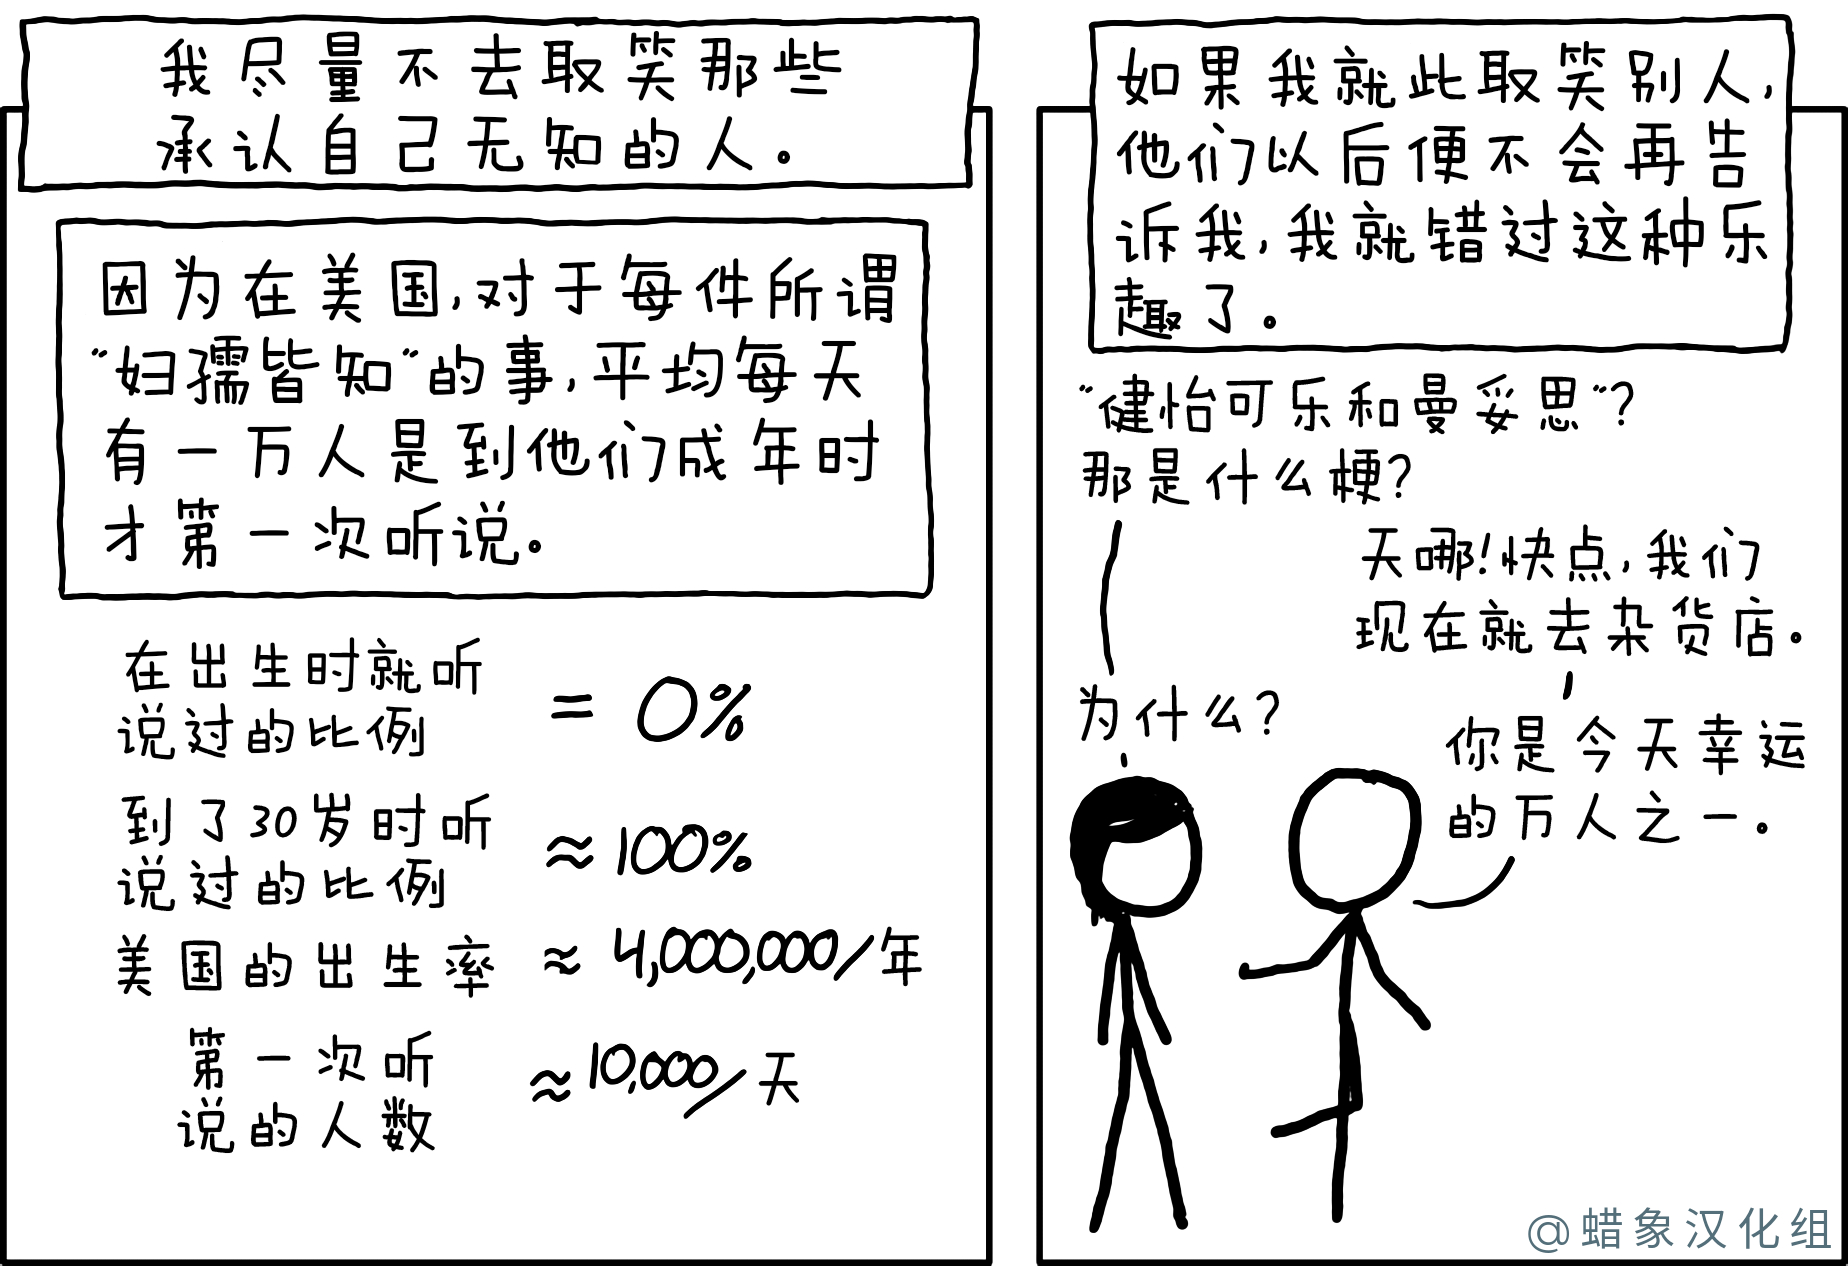 我尽量不去取笑那些
承认自己无知的人。
因为在美国,对于每件所谓
"妇孺皆知"的事,平均每天
有一万人是到他们成年时
才第一次听说。
在出生时就听
说过的比例
= 0%
到了30岁时听
说过的比例
≈ 100%
美国的出生率 ≈ 4,000,000/年
第一次听
说的人数
≈ 10,000/天
如果我就此取笑别人,
他们以后便不会再告
诉我,我就错过这种乐
趣了。
"健怡可乐和曼妥思"?
那是什么梗?
天哪!快点,我们
现在就去杂货店。
为什么?
你是今天幸运
的万人之一。
@蜡象汉化组